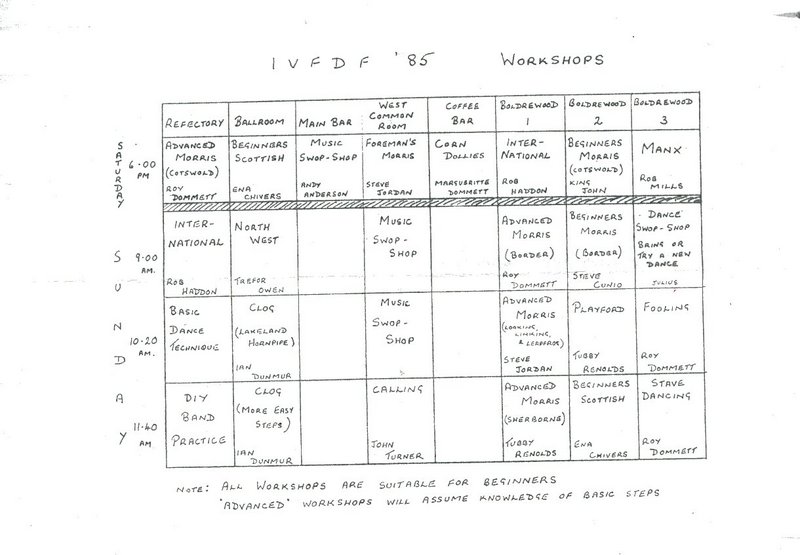 IVFDF '85 WORKSHOPS
REFECTORY BALLROOM MAIN BAR WEST COMMON ROOM COFFEE BAR BOLDREWOOD 1 BOLDREWOOD 2 BOLDREWOOD 3
SATURDAY
6.00 PM
ADVANCED MORRIS (COTSWOLD) ROY DOMMETT
BEGINNERS SCOTTISH ENA CHIVERS
MUSIC SWOP-SHOP ANDY ANDERSON
FOREMAN'S MORRIS STEVE JORDAN
CORN DOLLIES MARGUERITTE DOMMETT
INTER-NATIONAL ROB HADDON
BEGINNERS MORRIS (COTSWOLD) KING JOHN
MANX ROB MILLS
SUNDAY
9.00 AM.
INTER-NATIONAL ROB HADDON
NORTH WEST TREFOR OWEN
MUSIC SWOP-SHOP
ADVANCED MORRIS (BORDER) ROY DOMMETT
BEGINNERS MORRIS (BORDER) STEVE CUNIO
DANCE SWOP-SHOP BRING OR TRY A NEW DANCE JULIUS
10.20 AM.
BASIC DANCE TECHNIQUE
CLOG (LAKELAND HORNPIPE) IAN DUNMUR
MUSIC SWOP-SHOP
ADVANCED MORRIS & STEVE JORDAN
PLAYFORD TUBBY RENOLDS
FOOLING ROY DOMMETT
11.40 AM
DIY BAND PRACTICE
CLOG (MORE EASY STEPS) IAN DUNMUR
CALLING JOHN TURNER
ADVANCED MORRIS (SHERBORNE) TUBBY RENOLDS
BEGINNERS SCOTTISH ENA CHIVERS
STAVE DANCING ROY DOMMETT
NOTE: ALL WORKSHOPS ARE SUITABLE FOR BEGINNERS
'ADVANCED' WORKSHOPS WILL ASSUME KNOWLEDGE OF BASIC STEPS